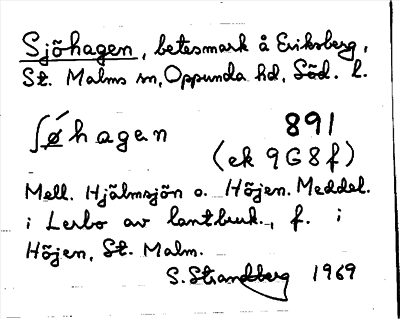 Sjöhagen, betesmark å Eriksberg,
St. Malms sn, Oppunda hd, Söd. l.
ʃǿhagen 891
(ek 9G8f)
Mell. Hjälmsjön o. Höjen. Meddel.
i Lerbo av lantbruk., f. i
Höjen, St. Malm.
S. Strandberg 1969